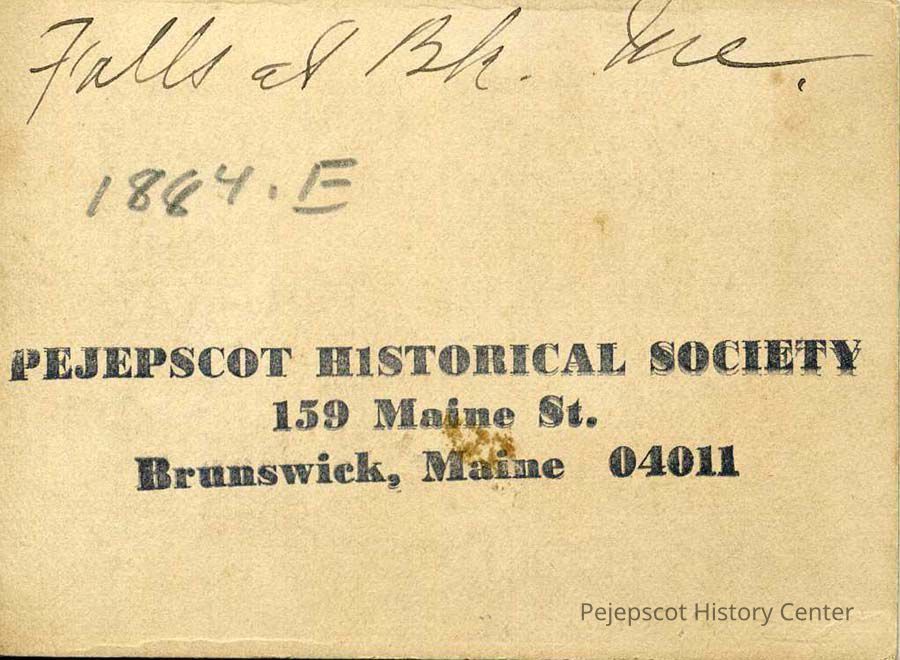 Falls at Bk. Me.
1884.E
PEJEPSCOT HISTORICAL SOCIETY
159 Maine St.
Brunswick, Maine 04011
Pejepscot History Center